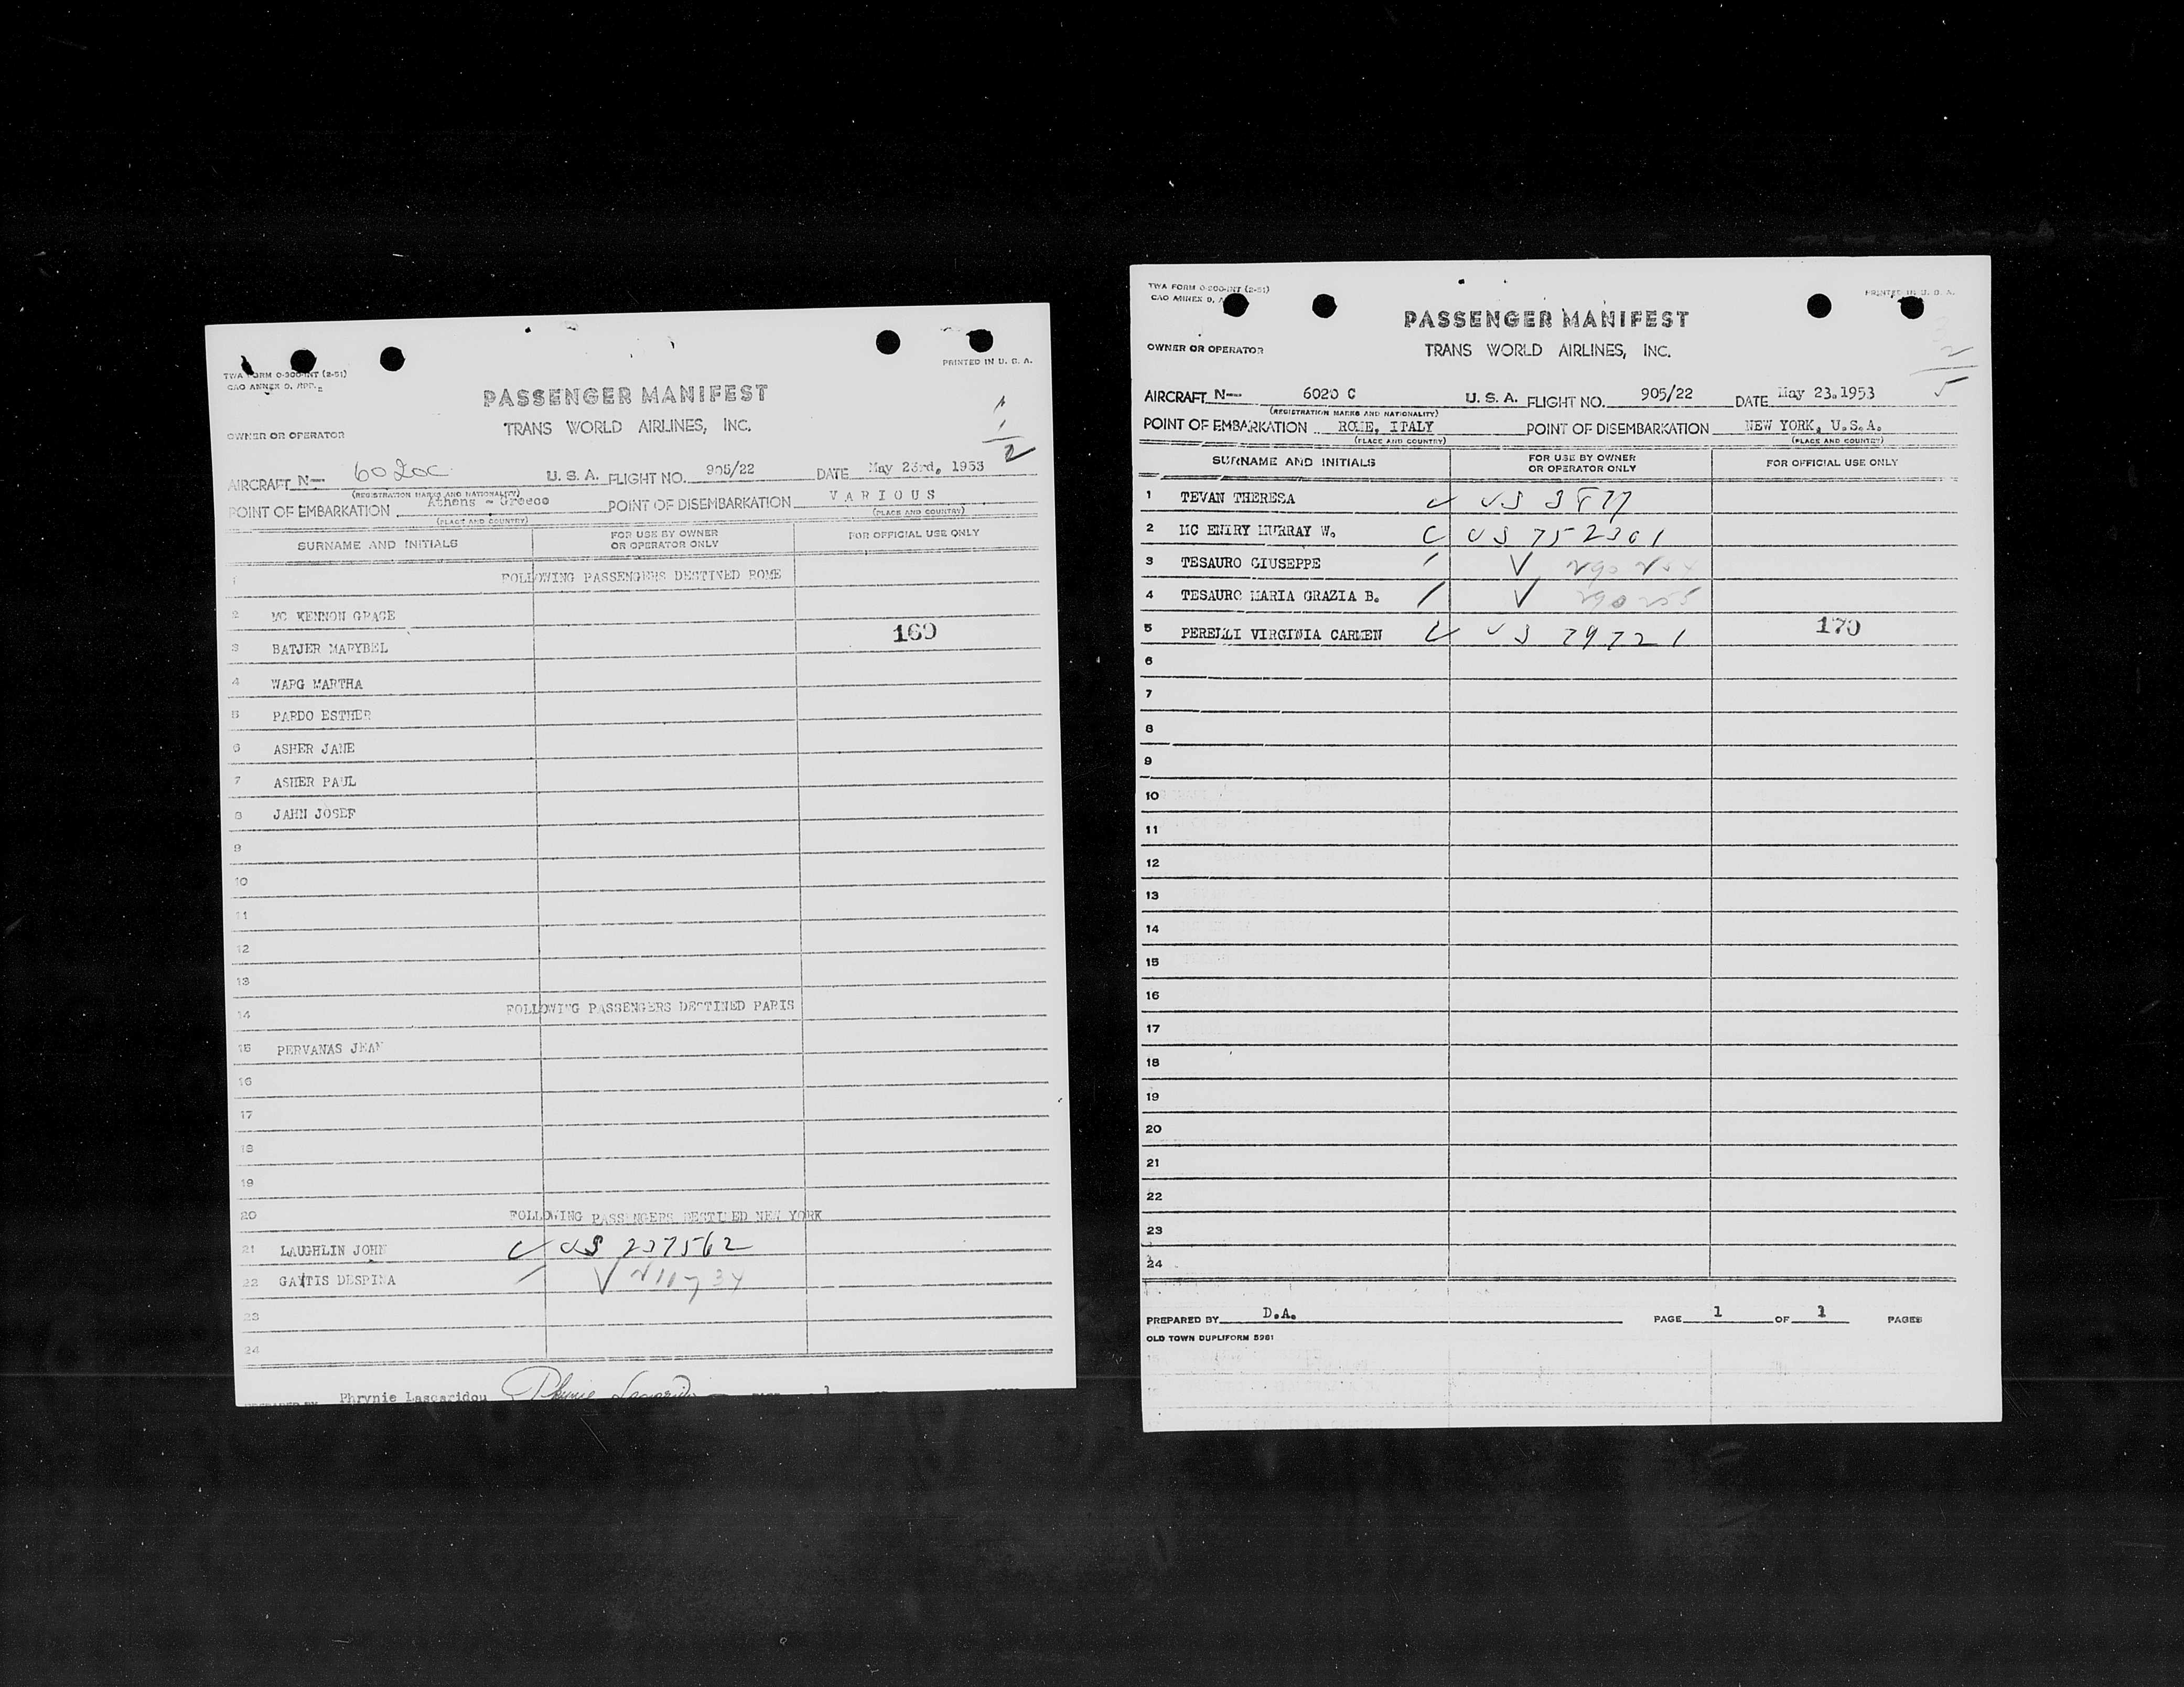 TWA FORM O-300-INT (2-51)
CAO ANNEX 9, APP.
PRINTED IN U. S. A.
PASSENGER MANIFEST
TRANS WORLD AIRLINES, INC.
OWNER OR OPERATOR
1
1
2
AIRCRAFT N— 6020C U. S. A. FLIGHT NO. 905/22 DATE May 23rd, 1953
(REGISTRATION MARKS AND NATIONALITY)
POINT OF EMBARKATION Athens - Greece POINT OF DISEMBARKATION VARIOUS
(PLACE AND COUNTRY) (PLACE AND COUNTRY)
SURNAME AND INITIALS FOR USE BY OWNER OR OPERATOR ONLY FOR OFFICIAL USE ONLY
1 FOLLOWING PASSENGERS DESTINED ROME
2 MC KENNON GRACE
3 BATJER MARYBEL 169
4 WARG MARTHA
5 PARDO ESTHER
6 ASHER JANE
7 ASHER PAUL
8 JAHN JOSEF
9
10
11
12
13
14 FOLLOWING PASSENGERS DESTINED PARIS
15 PERVANAS JEAN
16
17
18
19
20 FOLLOWING PASSENGERS DESTINED NEW YORK
21 LAUGHLIN JOHN US 237562
22 GAVTIS DESPINA V
23
24
PREPARED BY Phrynie Lascaridou Phrynie Lascaridou PAGE 1
TWA FORM O-300-INT (2-51)
CAO ANNEX 9,
PRINTED IN U. S. A.
PASSENGER MANIFEST
TRANS WORLD AIRLINES, INC.
OWNER OR OPERATOR
3
2
5
AIRCRAFT N— 6020 C U. S. A. FLIGHT NO. 905/22 DATE May 23.1953
(REGISTRATION MARKS AND NATIONALITY)
POINT OF EMBARKATION ROME, ITALY POINT OF DISEMBARKATION NEW YORK, U.S.A.
(PLACE AND COUNTRY) (PLACE AND COUNTRY)
SURNAME AND INITIALS FOR USE BY OWNER OR OPERATOR ONLY FOR OFFICIAL USE ONLY
1 TEVAN THERESA US 3877
2 MC ENIRY MURRAY W. US 752301
3 TESAURO GIUSEPPE V
4 TESAURO MARIA GRAZIA B. V
5 PERELLI VIRGINIA CARMEN US 79721 170
6
7
8
9
10
11
12
13
14
15
16
17
18
19
20
21
22
23
24
PREPARED BY D.A. PAGE 1 OF 1 PAGES
OLD TOWN DUPLIFORM 5981